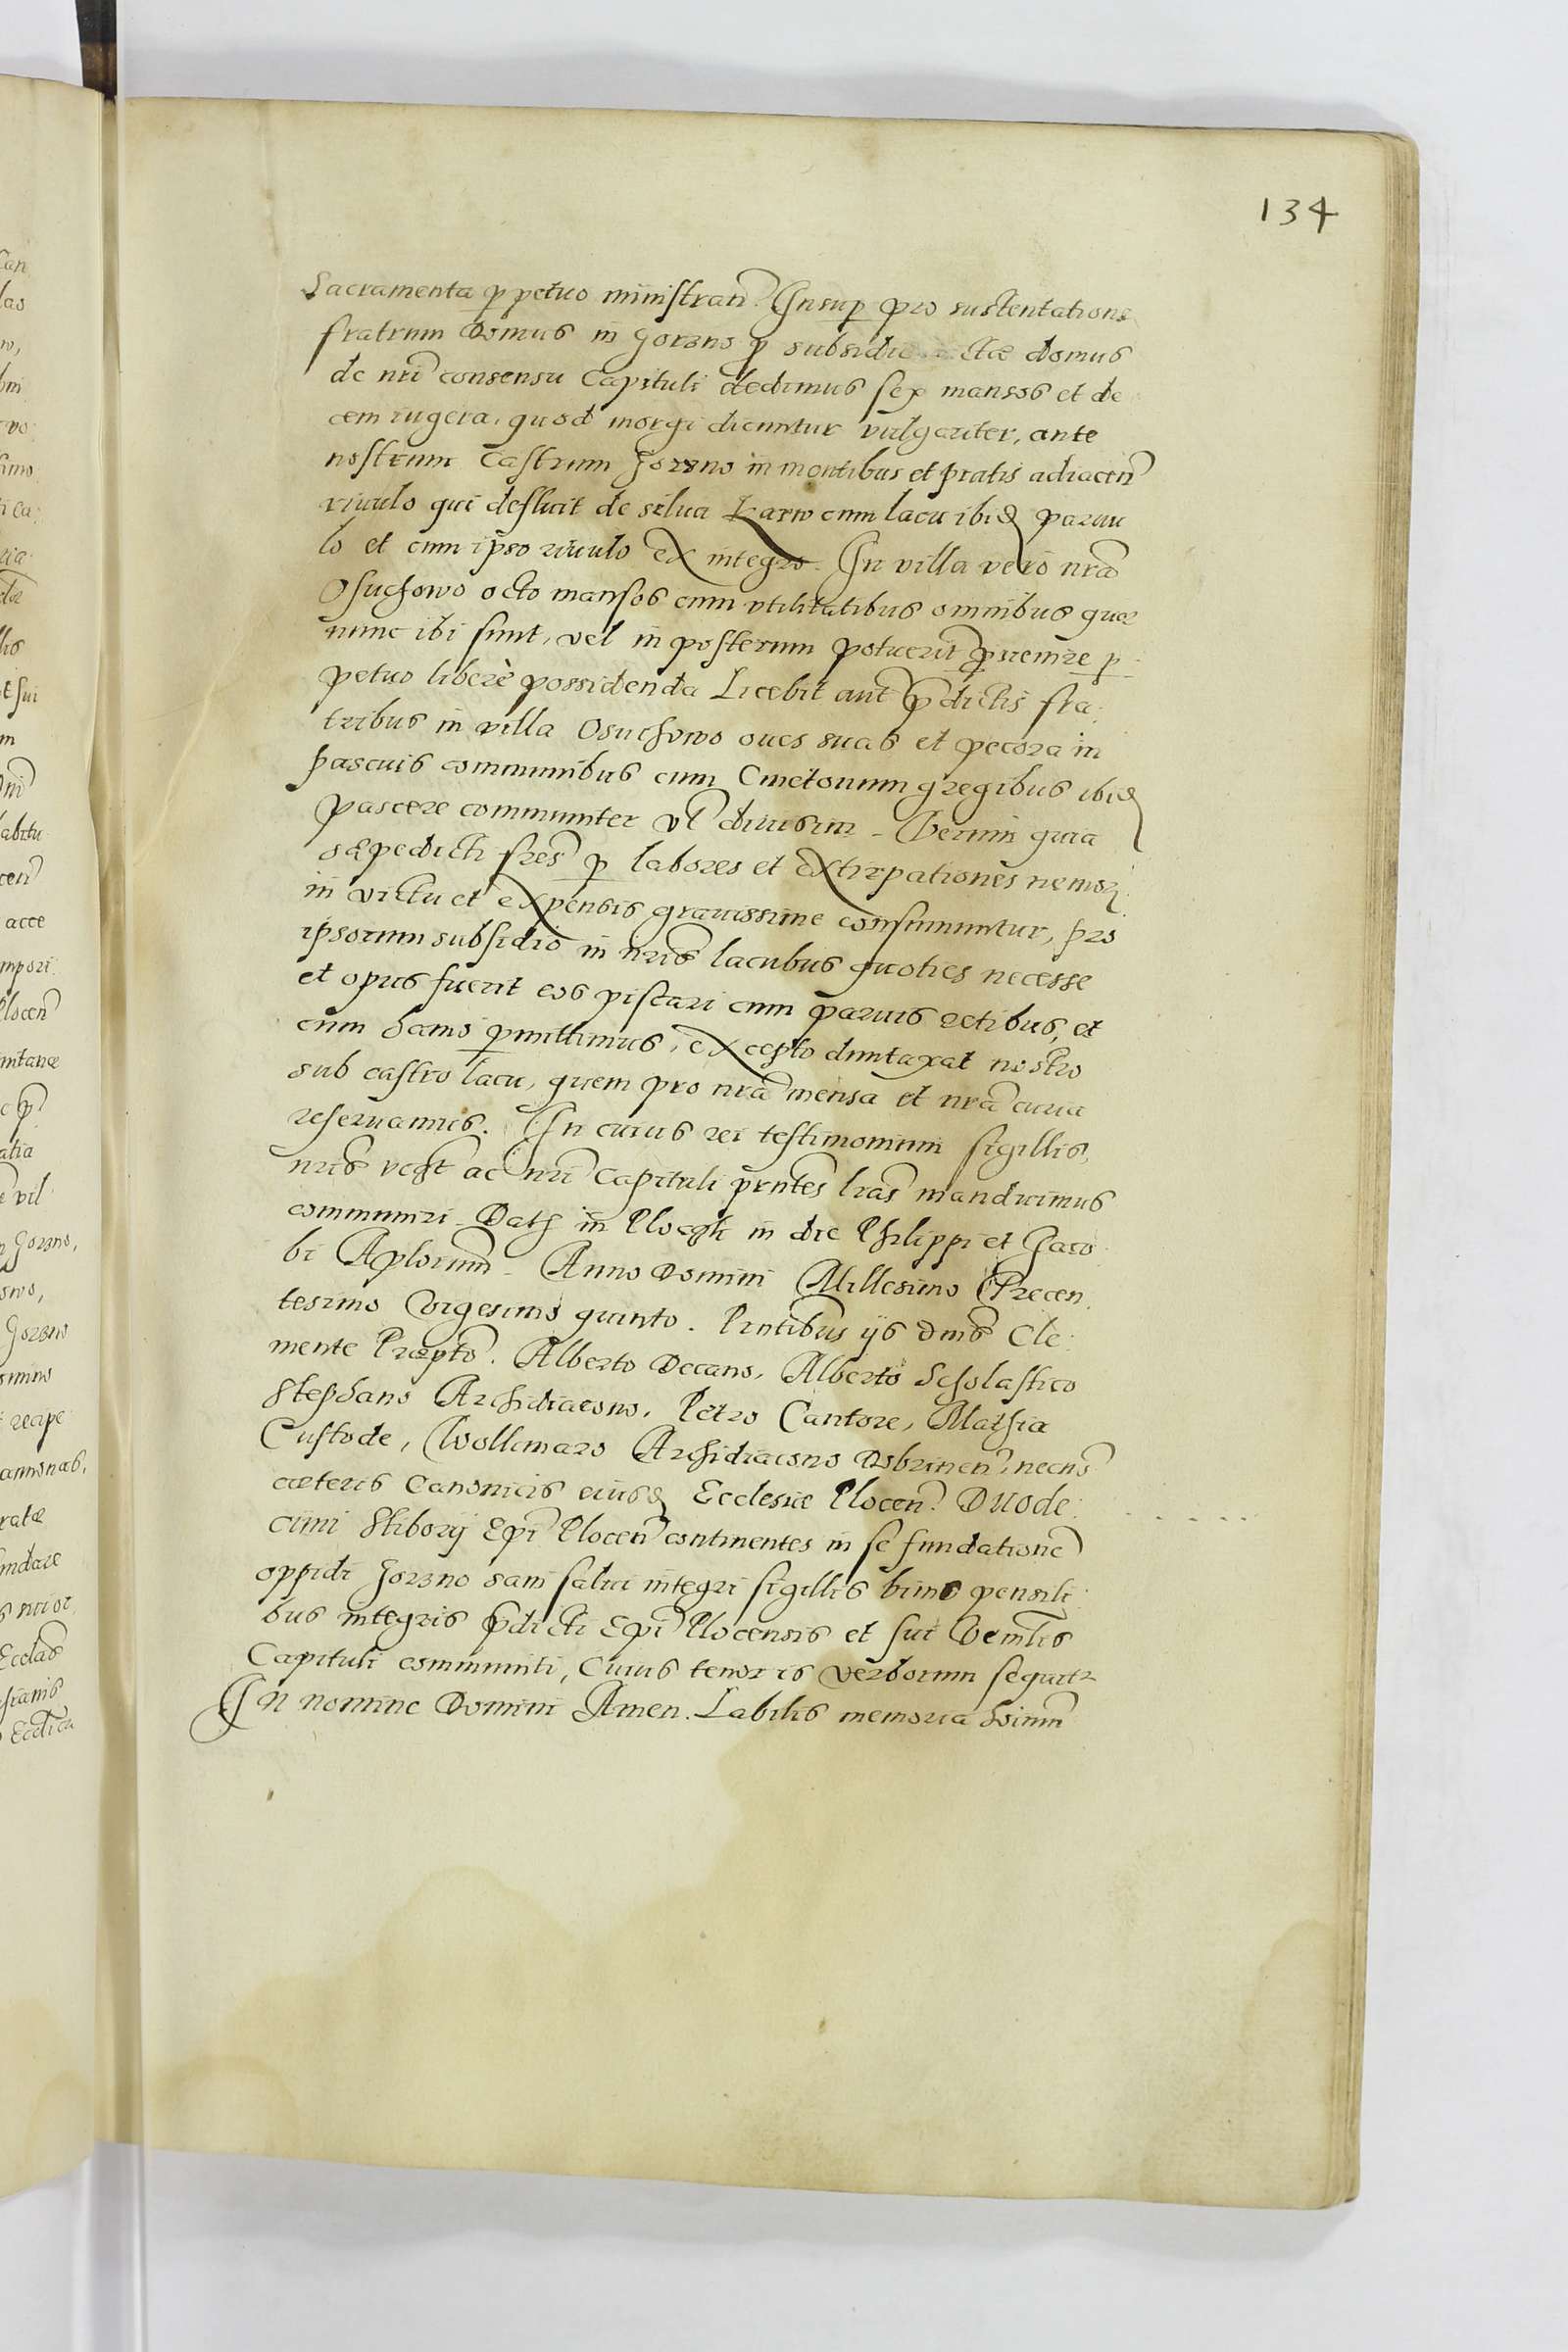 134
Sacramenta ppetuo ministran. Insup pro sustentatione
fratrum Domus in Gorzno p subsidi ctæ domus
de nri consensu Capituli dedimus sex mansos et de
cem iugera, quod morgi dicuntur vulgariter, ante
nostrum Castrum Gorzno in montibus et pratis adiacen
riuulo qui defluit de silua Karw cum lacu ibid paruu
lo et cum ipso riuulo ex integro. In villa vero nra
Osuchowo octo mansos cum vtilitatibus omnibus quæ
nunc ibi sunt, vel in posterum potuerit puenire p
petuo liberè possidenda Licebit aut pdictis fra:
tribus in villa Osuchowo oues suas et pecora in
pascuis communibus cum Cmetonum gregibus ibid
pascere communiter vl diuisim. Verum quia
sæpedicti fres p labores et extirpationes nemor
in victu et expensis grauissime consumuntur, pro
ipsorum subsidio in nris lacubus quoties necesse
et opus fuerit eos piscari cum paruis retibus, et
cum hamo pmittimus, excepto duntaxat nostro
sub castro lacu, quem pro nra mensa et nra curia
reseruamus. In cuius rei testimonium sigillis,
nris vest ac nri Capituli pntes lras manduimus
communiri. Dat in Ploczk in die Philippi et Iaco
bi Aplorum. Anno Domini Millesimo Trecen
tesimo Vigesimo quinto. Pntibus ijs dnis Cle:
mente Præpto. Alberto Decano, Alberto Scholastico
Stephano Archidiacono, Petro Cantore, Mathia
Custode, Wollimaro Archidiacono Dobrinen, necno
cæteris Canonicis eiusd Ecclesiæ Plocen. Duode:
cimi Stiborij Epi Plocen continentes in se fundatione
oppidi Gorzno sani salui integri sigillis binis pensili
bus integris pdicti Epi Plocensis et sui Venlis
Capituli communiti, Cuius tenor is verborum sequitr
In nomine Domini Amen. Labilis memoria hoinum